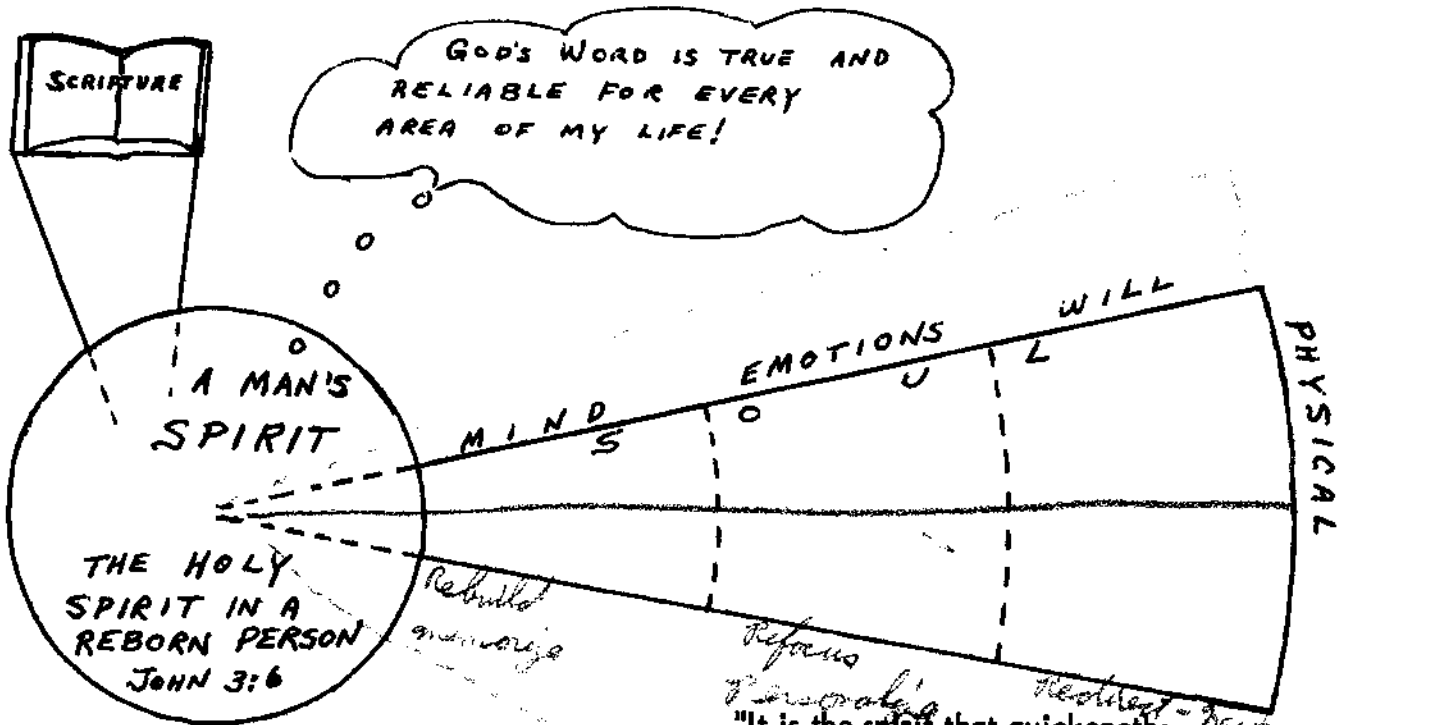 SCRIPTURE
GOD'S WORD IS TRUE AND
RELIABLE FOR EVERY
AREA OF MY LIFE!
A MAN'S
SPIRIT
THE HOLY
SPIRIT IN A
REBORN PERSON
JOHN 3:6
MIND
EMOTIONS
WILL
SOUL
PHYSICAL
Rebuild
memorize
Refocus
Redirect -
"It is the spirit that quickeneth